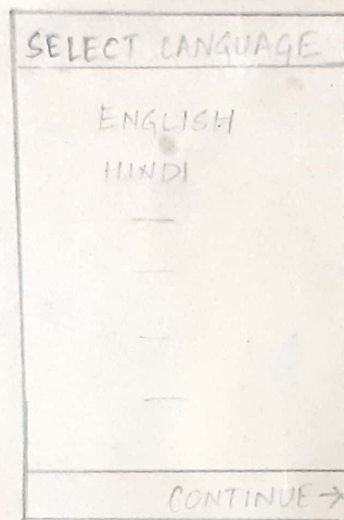 SELECT LANGUAGE
ENGLISH
HINDI
CONTINUE →